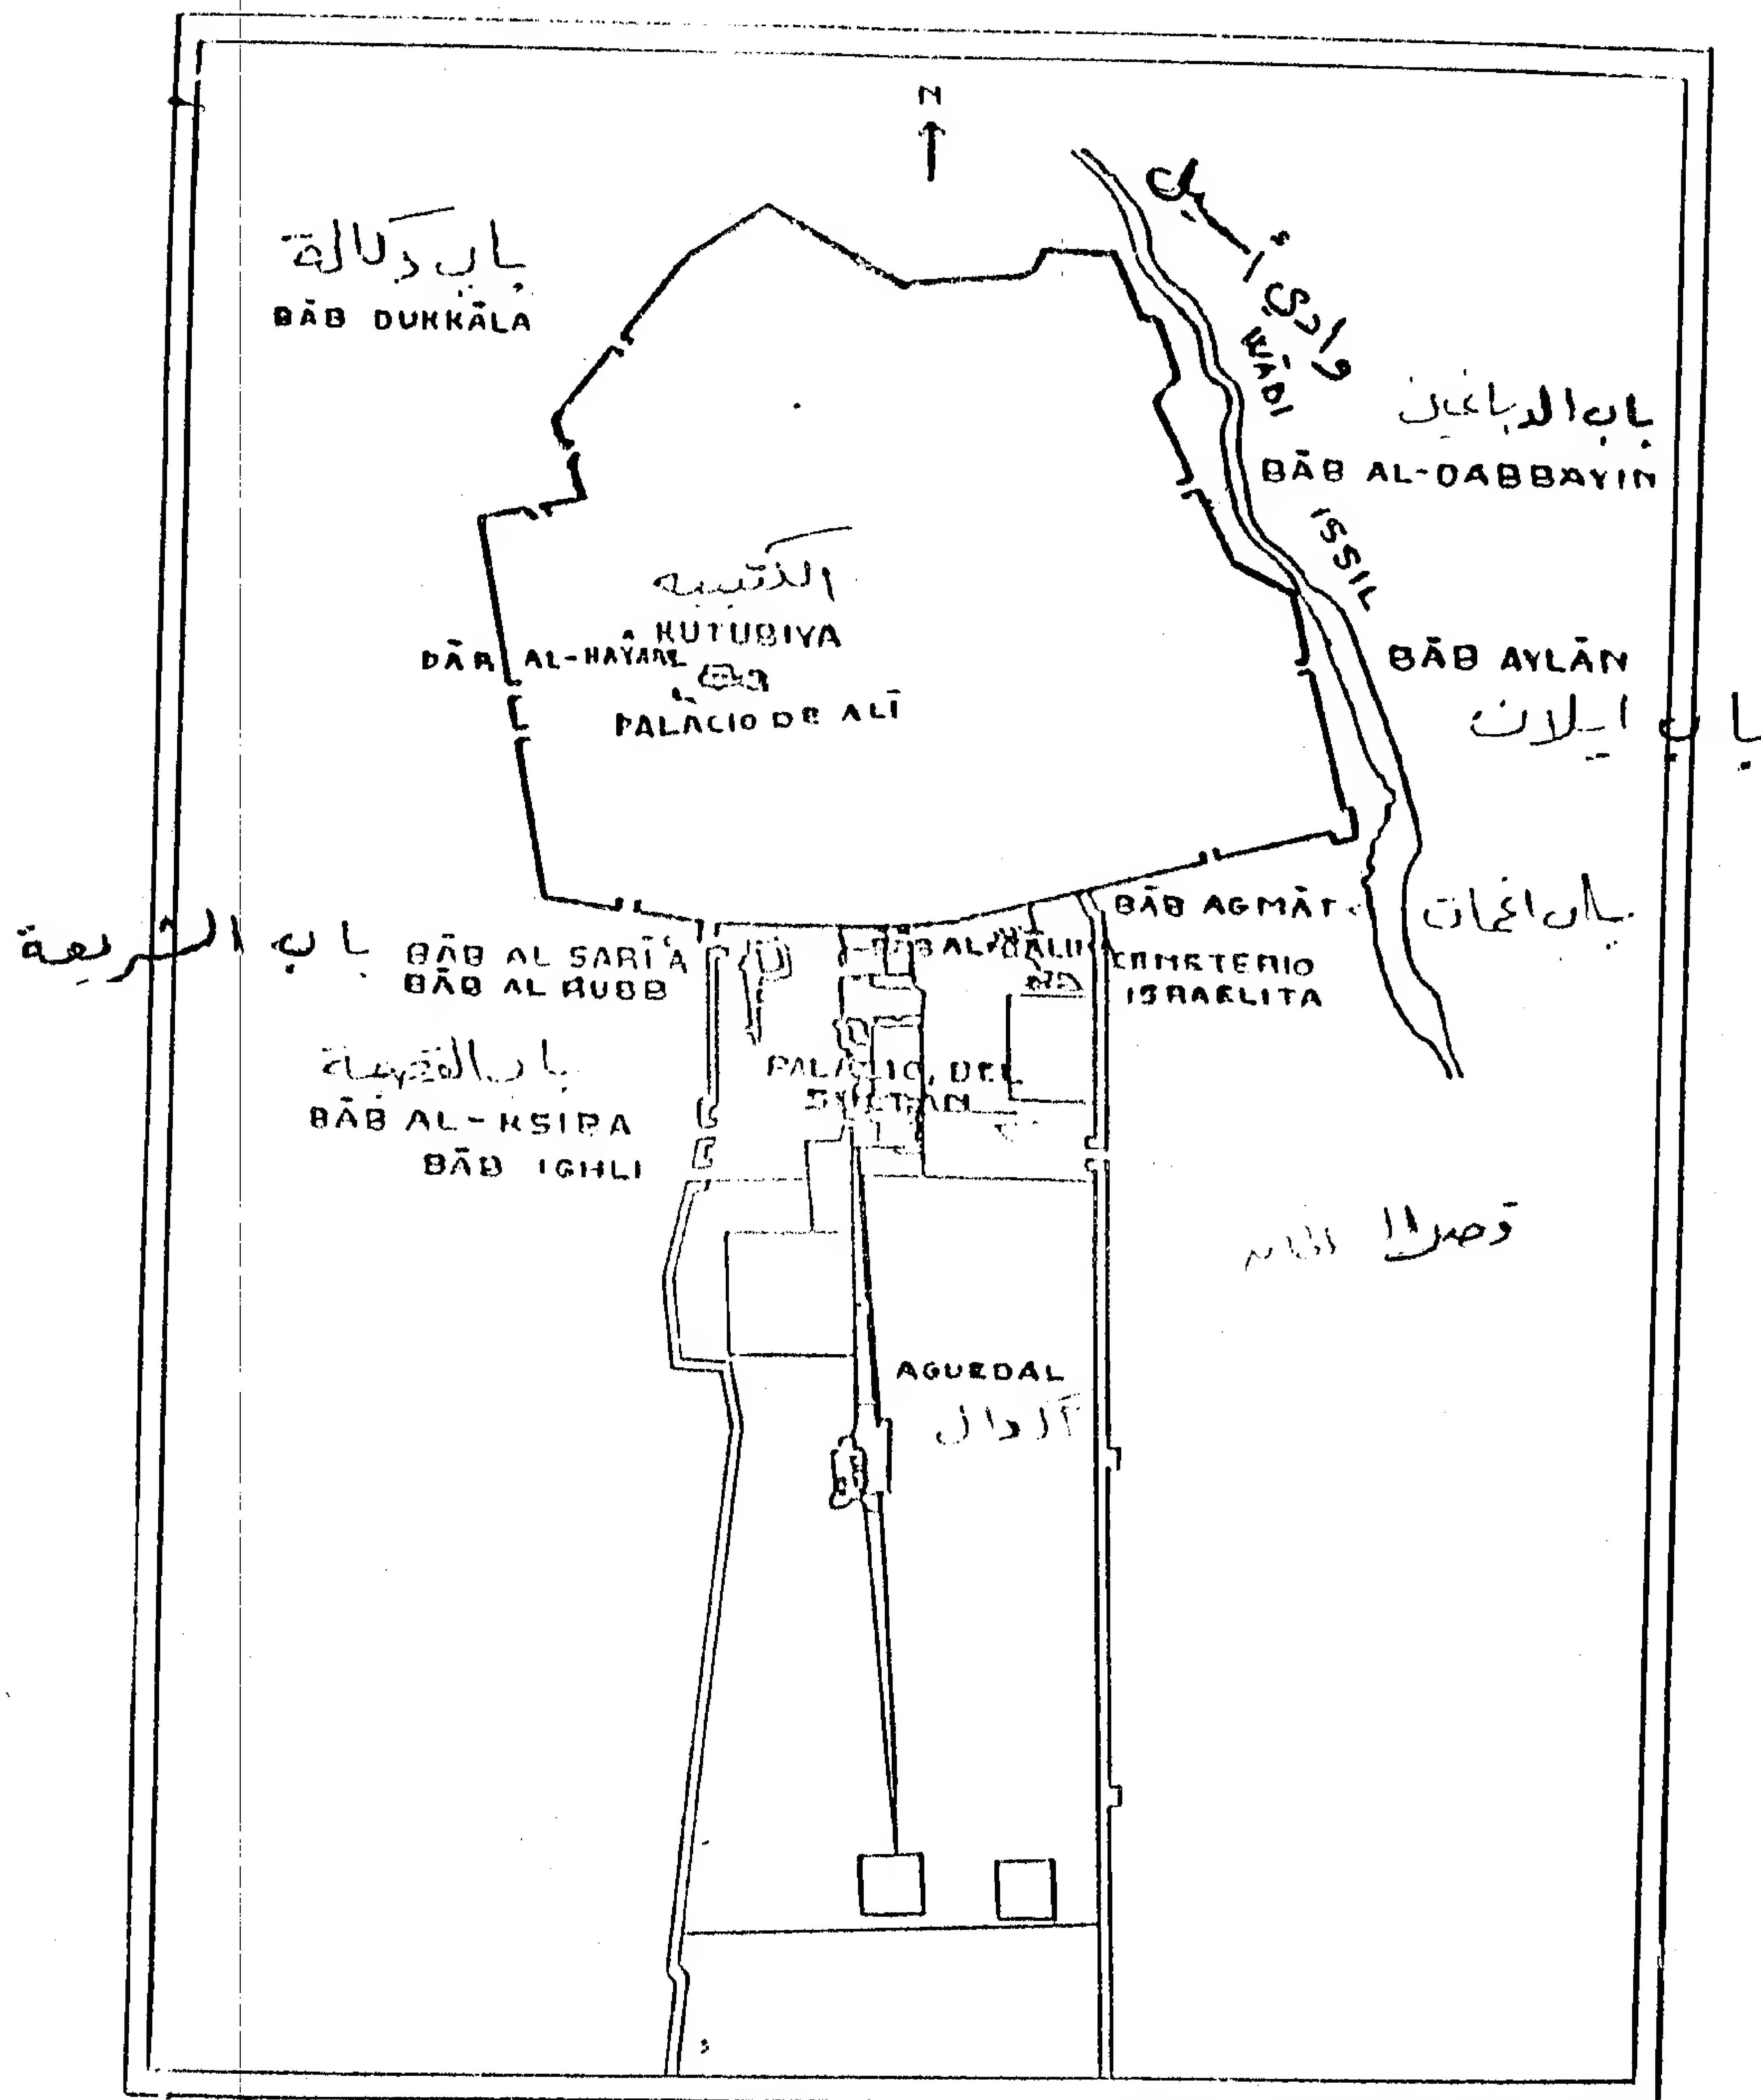 N
وادي أسيل
باب دكالة
BĀB DUKKĀLA
WĀDI ISSIL
باب الدباغين
BĀB AL-DABBAYIN
الكتبيه
KUTUBIYA
DĀR AL-HAYARE
PALÀCIO DE ALĪ
BĀB AYLĀN
باب ايلان
BĀB AGMĀT
باب اغمات
باب الشريعة
BĀB AL SARĪ'A
BĀB AL RUBB
CEMETERIO
ISRAELITA
باب القصيبة
BĀB AL-KSIBA
BĀB IGHLI
PALACIO DEL
SULTAN
قصر
AGUEDAL